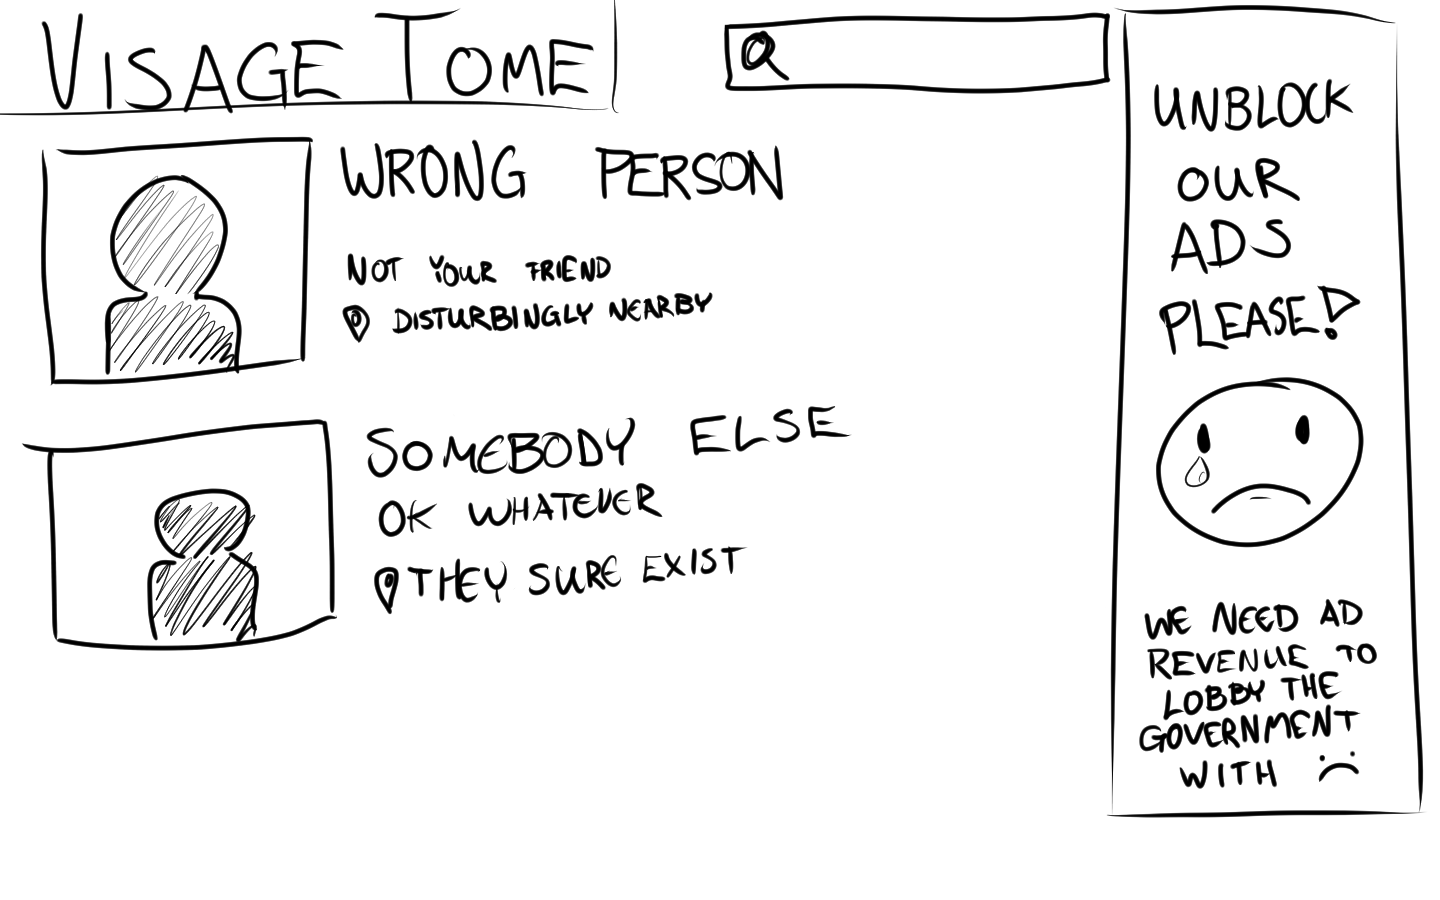 VISAGE TOME
WRONG PERSON
NOT YOUR FRIEND
DISTURBINGLY NEARBY
SOMEBODY ELSE
OK WHATEVER
THEY SURE EXIST
UNBLOCK
OUR
ADS
PLEASE!
WE NEED AD
REVENUE TO
LOBBY THE
GOVERNMENT
WITH